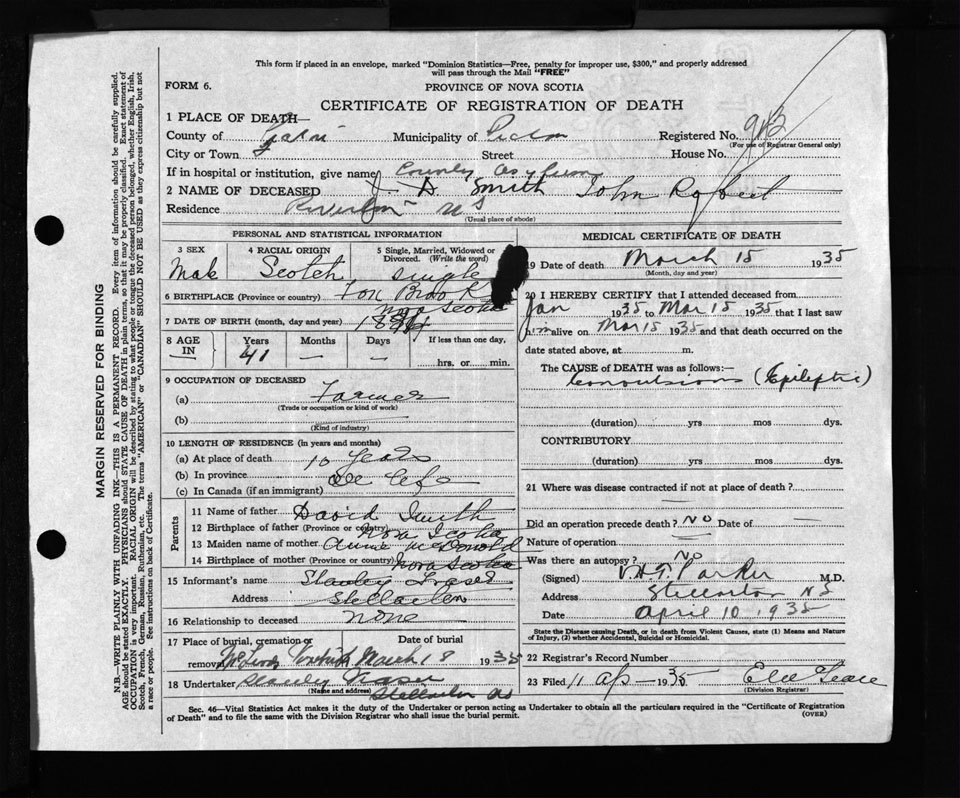 This form if placed in an envelope, marked "Dominion Statistics—Free, penalty for improper use, $300," and properly addressed
will pass through the Mail "FREE"
FORM 6.
PROVINCE OF NOVA SCOTIA
CERTIFICATE OF REGISTRATION OF DEATH
1 PLACE OF DEATH—
County of Municipality of Pictou Registered No. 913
(For use of Registrar General only)
City or Town Street House No.
If in hospital or institution, give name County Asylum
2 NAME OF DECEASED J. D. Smith John Robert
Residence Riverton NS
(Usual place of abode)
PERSONAL AND STATISTICAL INFORMATION
3 SEX Male
4 RACIAL ORIGIN Scotch
5 Single, Married, Widowed or Divorced. (Write the word) single
6 BIRTHPLACE (Province or country) Brook Nova Scotia
7 DATE OF BIRTH (month, day and year) 1894
8 AGE IN Years 41 Months — Days — If less than one day, hrs. or min.
9 OCCUPATION OF DECEASED
(a) Farmer
(Trade or occupation or kind of work)
(b)
(Kind of industry)
10 LENGTH OF RESIDENCE (in years and months)
(a) At place of death 10 years
(b) In province all life
(c) In Canada (if an immigrant)
Parents
11 Name of father David Smith
12 Birthplace of father (Province or country) Nova Scotia
13 Maiden name of mother Annie McDonald
14 Birthplace of mother (Province or country) Nova Scotia
15 Informant's name Stanley Fraser
Address Stellarton
16 Relationship to deceased none
17 Place of burial, cremation or removal Date of burial March 18 1935
18 Undertaker Stanley Fraser
(Name and address) Stellarton NS
MEDICAL CERTIFICATE OF DEATH
19 Date of death March 15 1935
(Month, day and year)
20 I HEREBY CERTIFY that I attended deceased from
Jan 1935 to Mar 15 1935 that I last saw
him alive on Mar 15 1935 and that death occurred on
date stated above, at m.
The CAUSE of DEATH was as follows:—
Convulsions (Epileptic)
(duration) yrs mos dys.
CONTRIBUTORY
(duration) yrs mos dys.
21 Where was disease contracted if not at place of death?
Did an operation precede death? No Date of —
Nature of operation
Was there an autopsy? No
(Signed) Parker M.D.
Address Stellarton NS
Date April 10, 1935
State the Disease causing Death, or in death from Violent Causes, state (1) Means and Nature
of Injury, (2) whether Accidental, Suicidal or Homicidal.
22 Registrar's Record Number
23 Filed 11 Ap— 1935
(Division Registrar)
Sec. 46—Vital Statistics Act makes it the duty of the Undertaker or person acting as Undertaker to obtain all the particulars required in the "Certificate of Registration
of Death" and to file the same with the Division Registrar who shall issue the burial permit.
(OVER)
MARGIN RESERVED FOR BINDING
N.B.—WRITE PLAINLY WITH UNFADING INK—THIS IS A PERMANENT RECORD. Every item of information should be carefully supplied.
AGE should be stated EXACTLY. PHYSICIANS should STATE CAUSE OF DEATH in plain terms, so that it may be properly classified. Exact statement of
OCCUPATION is very important. RACIAL ORIGIN will be described by stating to what people or tongue the deceased person belonged, whether English, Irish,
Scotch, French, German, Russian, Ruthenian, etc. The terms "AMERICAN" or "CANADIAN" SHOULD NOT BE USED as they express citizenship but not
a race or people. See instructions on back of Certificate.